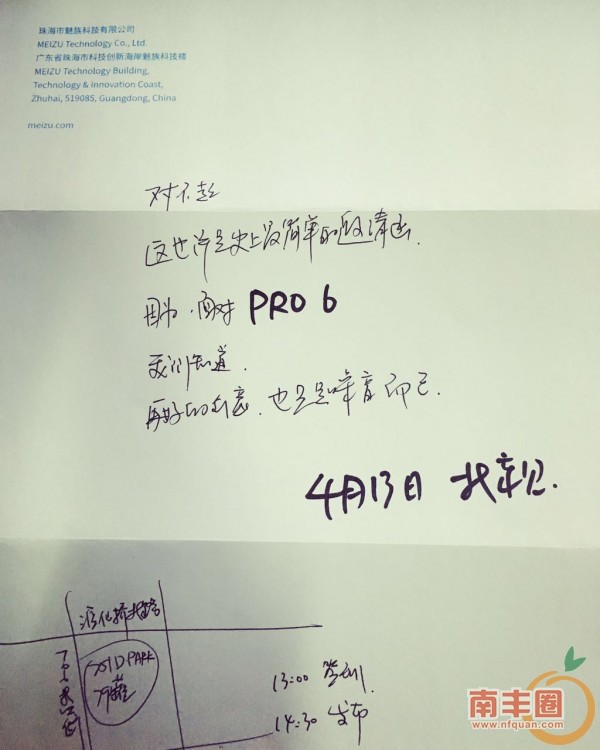 珠海市魅族科技有限公司
MEIZU Technology Co., Ltd.
广东省珠海市科技创新海岸魅族科技楼
MEIZU Technology Building,
Technology & Innovation Coast,
Zhuhai, 519085, Guangdong, China
meizu.com
对不起
这也许是史上最简单的邀请函.
因为,面对 PRO 6
我们知道,
再好的创意,也只是噪音而已.
4月13日 北京见.
PARK
13:00 签到
14:30 发布
南丰圈
www.nfquan.com